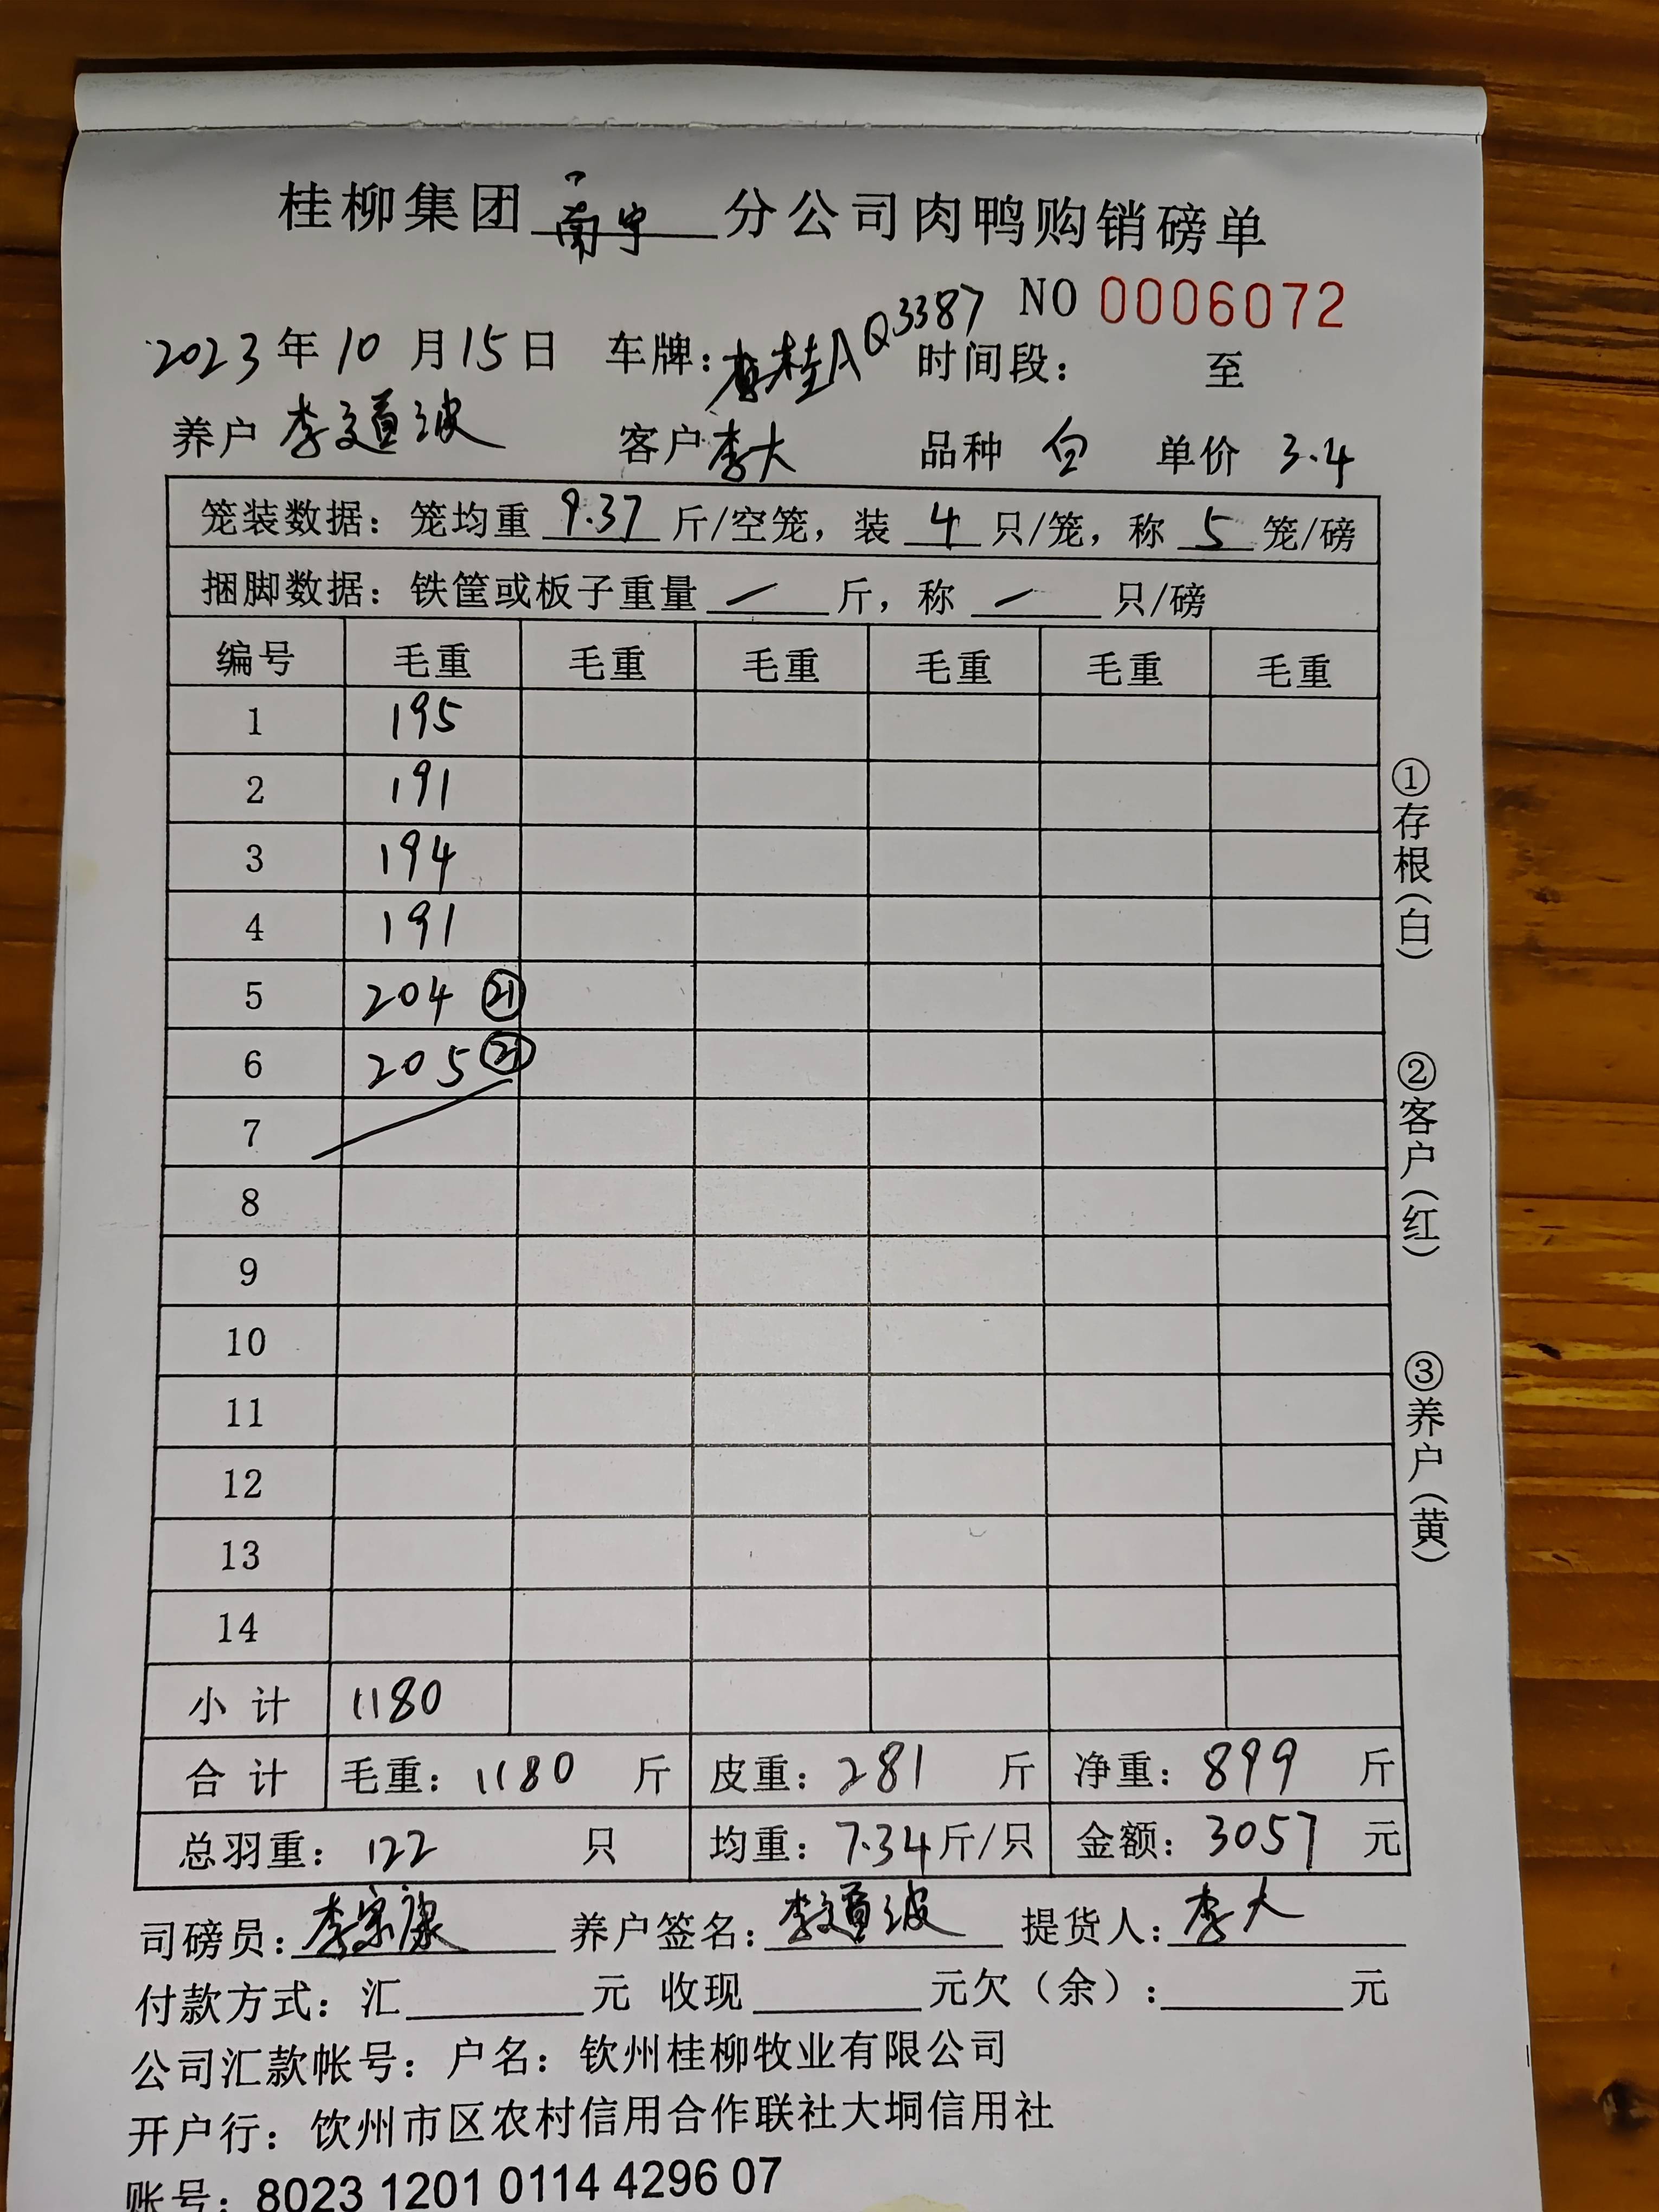 桂柳集团 南宁 分公司肉鸭购销磅单
NO 0006072
2023年10月15日 车牌:桂AQ3387 时间段: 至
养户 李道波 客户 李大 品种 白 单价 3.4
笼装数据:笼均重 9.37 斤/空笼,装 4 只/笼,称 5 笼/磅
捆脚数据:铁筐或板子重量 / 斤,称 / 只/磅
编号 毛重 毛重 毛重 毛重 毛重 毛重
1 195
2 191
3 194
4 191
5 204 21
6 205 21
7
8
9
10
11
12
13
14
小计 1180
合计 毛重:1180 斤 皮重:281 斤 净重:899 斤
总羽重:122 只 均重:7.34斤/只 金额:3057 元
司磅员:李宗康 养户签名:李道波 提货人:李大
付款方式:汇 元 收现 元欠(余): 元
公司汇款帐号:户名:钦州桂柳牧业有限公司
开户行:饮州市区农村信用合作联社大垌信用社
账号:8023 1201 0114 4296 07
①存根(白)
②客户(红)
③养户(黄)